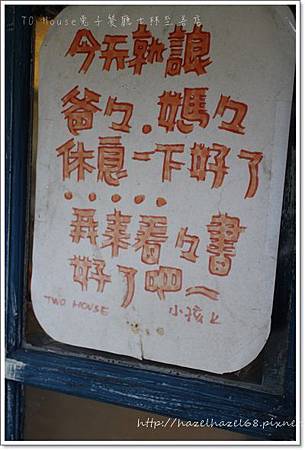 TO House兔子餐廳士林至善店
今天就讓
爸々.媽々
休息一下好了
.....
弄來看々書
好了吧~
TWO HOUSE 小孩
http://hazelhazel68.pixnet